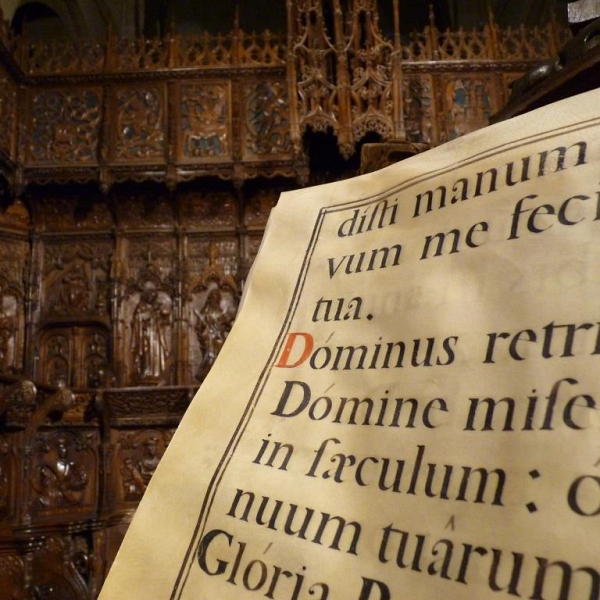 diſti manum
vum me feci
tua.
Dóminus retri
Dómine miſe
in ſæculum : ó
nuum tuârum
Glória P